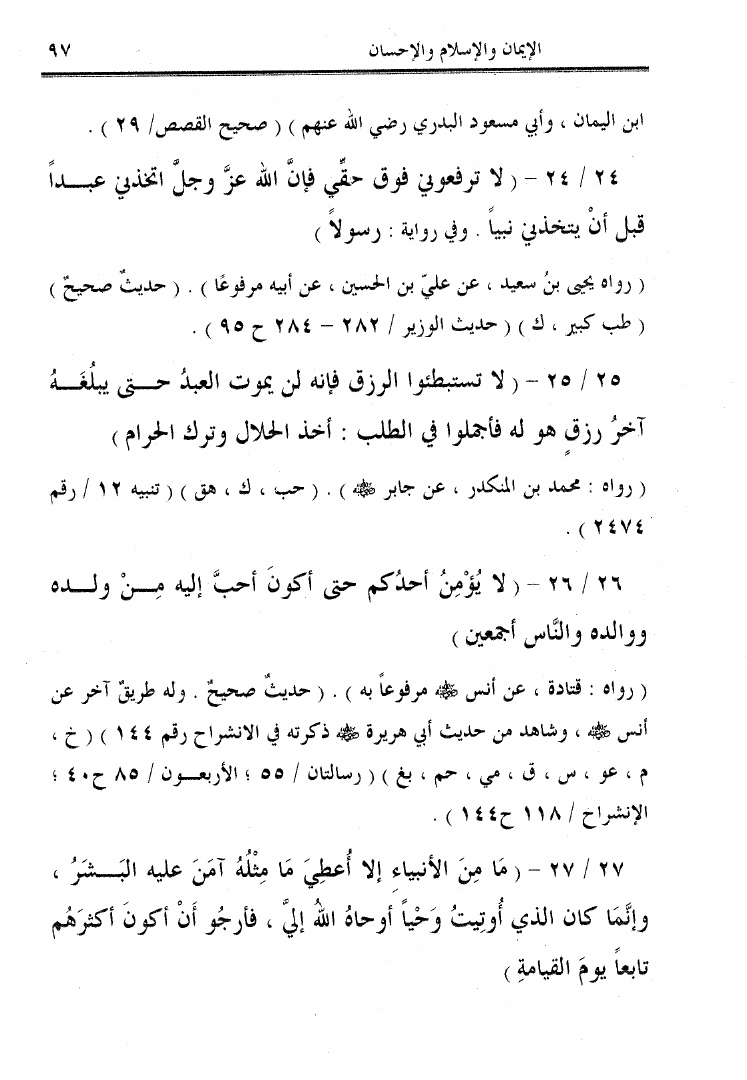 الإيمان والإسلام والإحسان ٩٧
ابن اليمان ، وأبي مسعود البدري رضي الله عنهم ) ( صحيح القصص/ ٢٩ ) .
٢٤ / ٢٤ – ( لا ترفعوني فوق حقِّي فإنَّ الله عزَّ وجلَّ اتخذني عبـــداً
قبل أنْ يتخذني نبياً . وفي رواية : رسولاً )
( رواه يحيى بنُ سعيد ، عن عليّ بن الحسين ، عن أبيه مرفوعًا ) . ( حديثٌ صحيحٌ )
( طب كبير ، ك ) ( حديث الوزير / ٢٨٢ – ٢٨٤ ح ٩٥ ) .
٢٥ / ٢٥ – ( لا تستبطئوا الرزق فإنه لن يموت العبدُ حـــتى يبلُغَـــهُ
آخرُ رزقٍ هو له فأجملوا في الطلب : أخذ الحلال وترك الحرام )
( رواه : محمد بن المنكدر ، عن جابر ﷺ ) . ( حب ، ك ، هق ) ( تنبيه ١٢ / رقم
٢٤٧٤ ) .
٢٦ / ٢٦ – ( لا يُؤْمِنُ أحدُكم حتى أكونَ أحبَّ إليه مِـــنْ ولـــده
ووالده والنَّاس أجمعين )
( رواه : قتادة ، عن أنس ﷺ مرفوعاً به ) . ( حديثٌ صحيحٌ . وله طريقٌ آخر عن
أنس ﷺ ، وشاهد من حديث أبي هريرة ﷺ ذكرته في الانشراح رقم ١٤٤ ) ( خ ،
م ، عو ، س ، ق ، مي ، حم ، بغ ) ( رسالتان / ٥٥ ؛ الأربعـــون / ٨٥ ح٤٠ ؛
الإنشراح / ١١٨ ح١٤٤ ) .
٢٧ / ٢٧ – ( مَا مِنَ الأنبياءِ إلا أُعطِيَ مَا مِثْلُهُ آمَنَ عليه البَـــشَرُ ،
وإنَّمَا كان الذي أُوتِيتُ وَحْياً أوحاهُ اللهُ إليَّ ، فأرجُو أَنْ أكونَ أكثرَهُم
تابعاً يومَ القيامةِ )